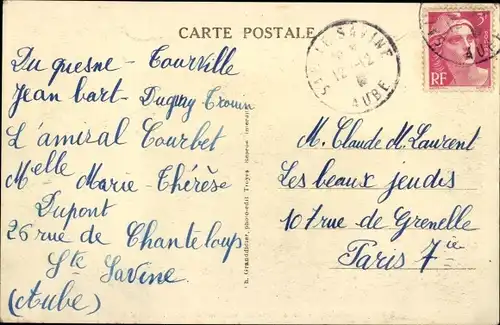 CARTE POSTALE
Du quesne - Tourville
Jean bart - Duguay Trouin
L'amiral Courbet
Melle Marie-Thérèse
Dupont
26 rue de Chanteloup
Ste Savine
(Aube)
STE SAVINE
12-12
AUBE
3F
RF
AUBE
M. Claude M. Laurent
Les beaux jeudis
107 rue de Grenelle
Paris 7ie
photo-édit Troyes